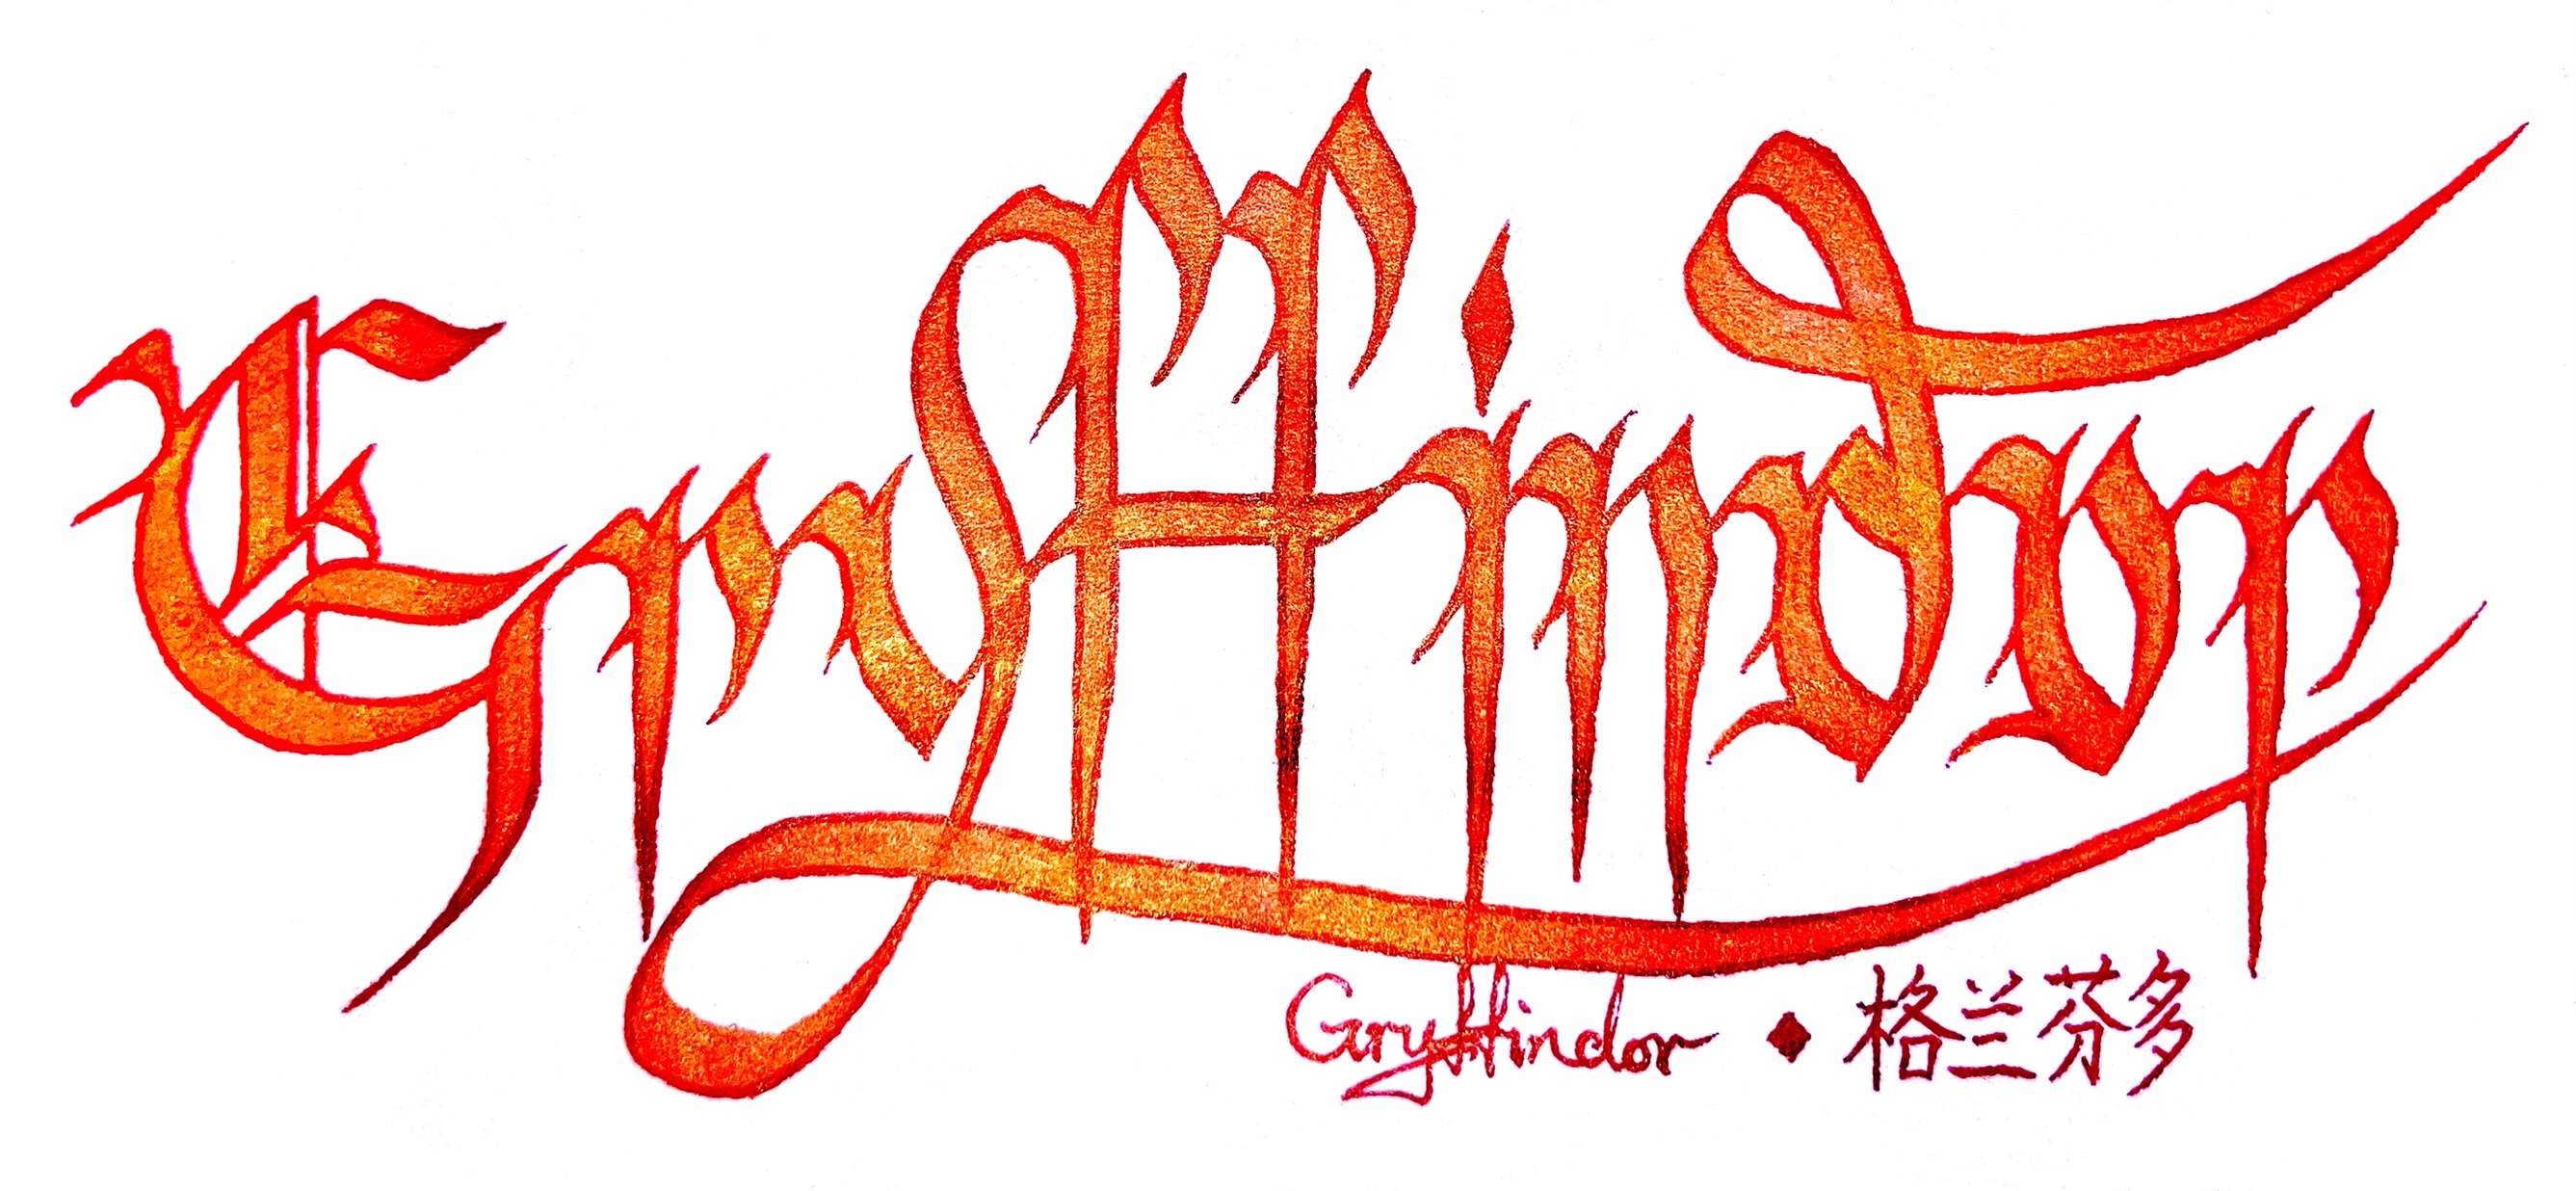 Gryffindor
Gryffindor ◆ 格兰芬多